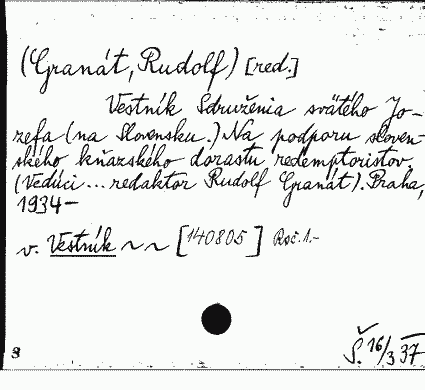 (Granát, Rudolf) [red.]
Vestník Sdruženia svätého Jo-
zefa (na Slovensku.) Na podporu sloven-
ského kňazského dorastu redemptoristov.
(Vedúci... redaktor Rudolf Granát). Praha,
1934-
v. Vestník ~ ~ [140805] Roč. 1.-
Š. 16/3 37
3